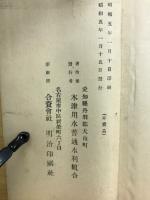 昭和五年一月十日印刷
昭和五年一月十五日發行
（非賣品）
愛知縣丹羽郡犬山町
發行者
木津用水普通水利組合
名古屋市中區新榮町六丁目
印刷所
合資會社 明治印刷社